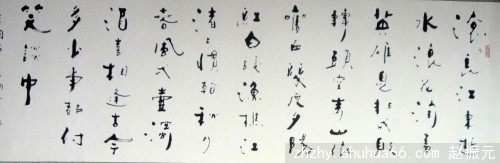 滾滾長江東逝
水浪花淘盡
英雄是非成敗
轉頭空青山依
舊在幾度夕陽
紅白髮漁樵江
渚上慣看秋月
春風一壺濁
酒喜相逢古今
多少事都付
笑談中
zhzhy.shuhua66.com 赵振元